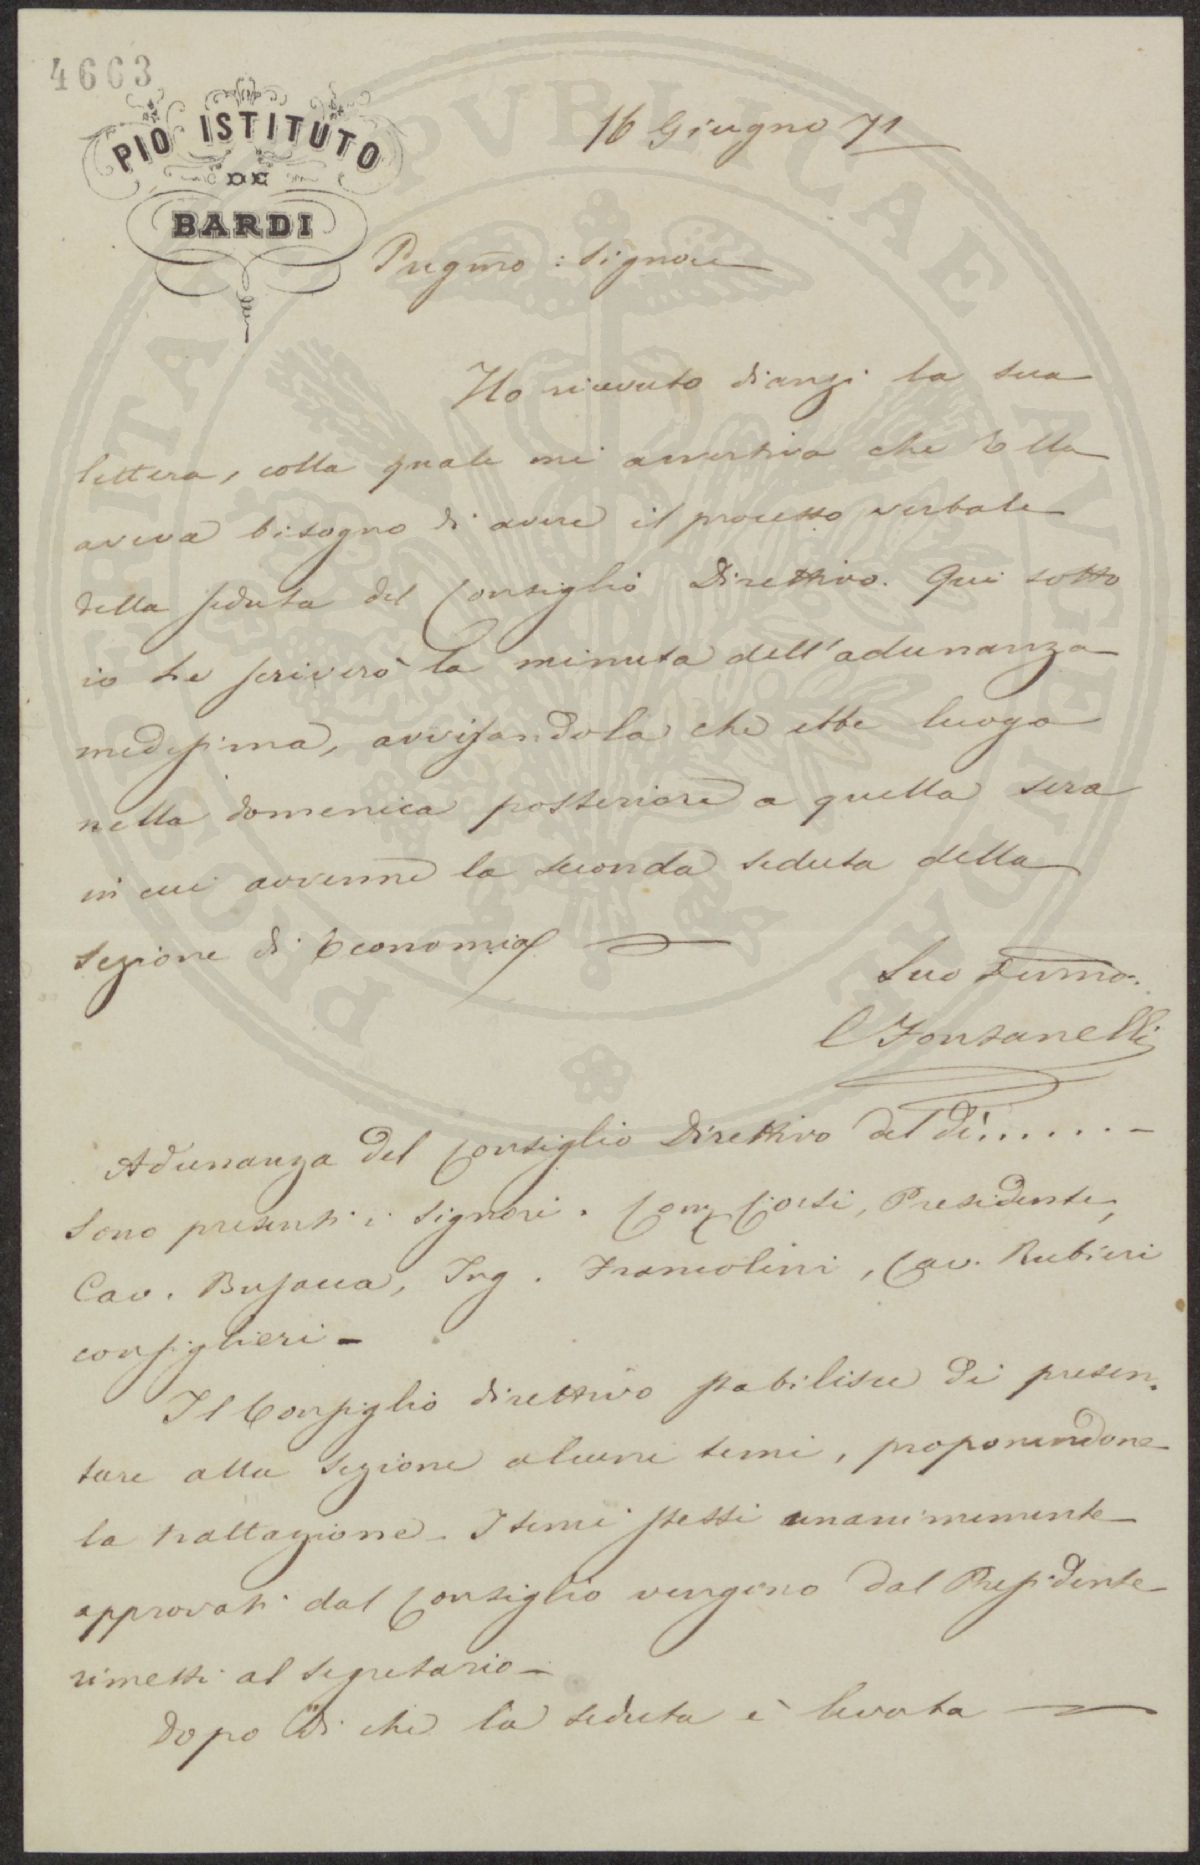 4663
PIO ISTITUTO
DE
BARDI
16 Giugno 71
Pregmo: Signore
Ho ricevuto dianzi la sua
lettera, colla quale mi avvertiva che Ella
aveva bisogno di avere il processo verbale
della seduta del Consiglio Direttivo. Qui sotto
io le scriverò la minuta dell'adunanza
medesima, avvisandola che ebbe luogo
nella domenica posteriore a quella sera
in cui avvenne la seconda seduta della
sezione di Economia
Suo Devmo.
C Fontanelli
Adunanza del Consiglio Direttivo del dì.......
Sono presenti i signori. Com Corsi, Presidente,
Cav. Busacca, Ing. Francolini, Cav. Rubieri
consiglieri -
Il Consiglio direttivo stabilisce di presen.
tare alla sezione alcuni temi, proponendone
la trattazione. I temi stessi unanimemente
approvati dal Consiglio vengono dal Presidente
rimessi al segretario -
Dopo di che la seduta è levata
PROSPERITATI PVBLICAE AVGENDAE